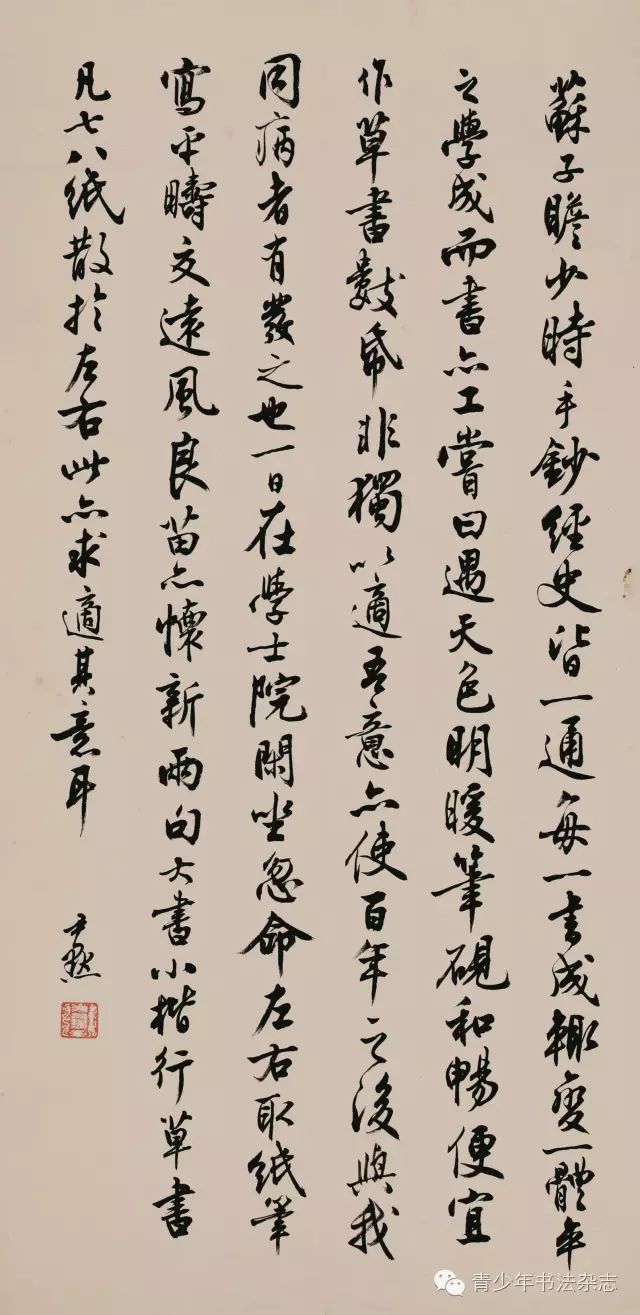 蘇子瞻少時手鈔經史皆一通每一書成輒變一體卒
之學成而書亦工嘗曰遇天色明暖筆硯和暢便宜
作草書數紙非獨以適吾意亦使百年之後與我
同病者有發之也一日在學士院閑坐忽命左右取紙筆
寫平疇交遠風良苗亦懷新兩句大書小楷行草書
凡七八紙散於左右此亦求適其意耳
尹默
青少年书法杂志